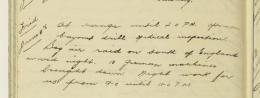 At range until 2.0 P.M. afternoon
bayonet drill & medical inspection.
Big air raid on South of England
around night. 10 German machines
brought down. Night work for
us from 9.0 until 12.0 P.M.